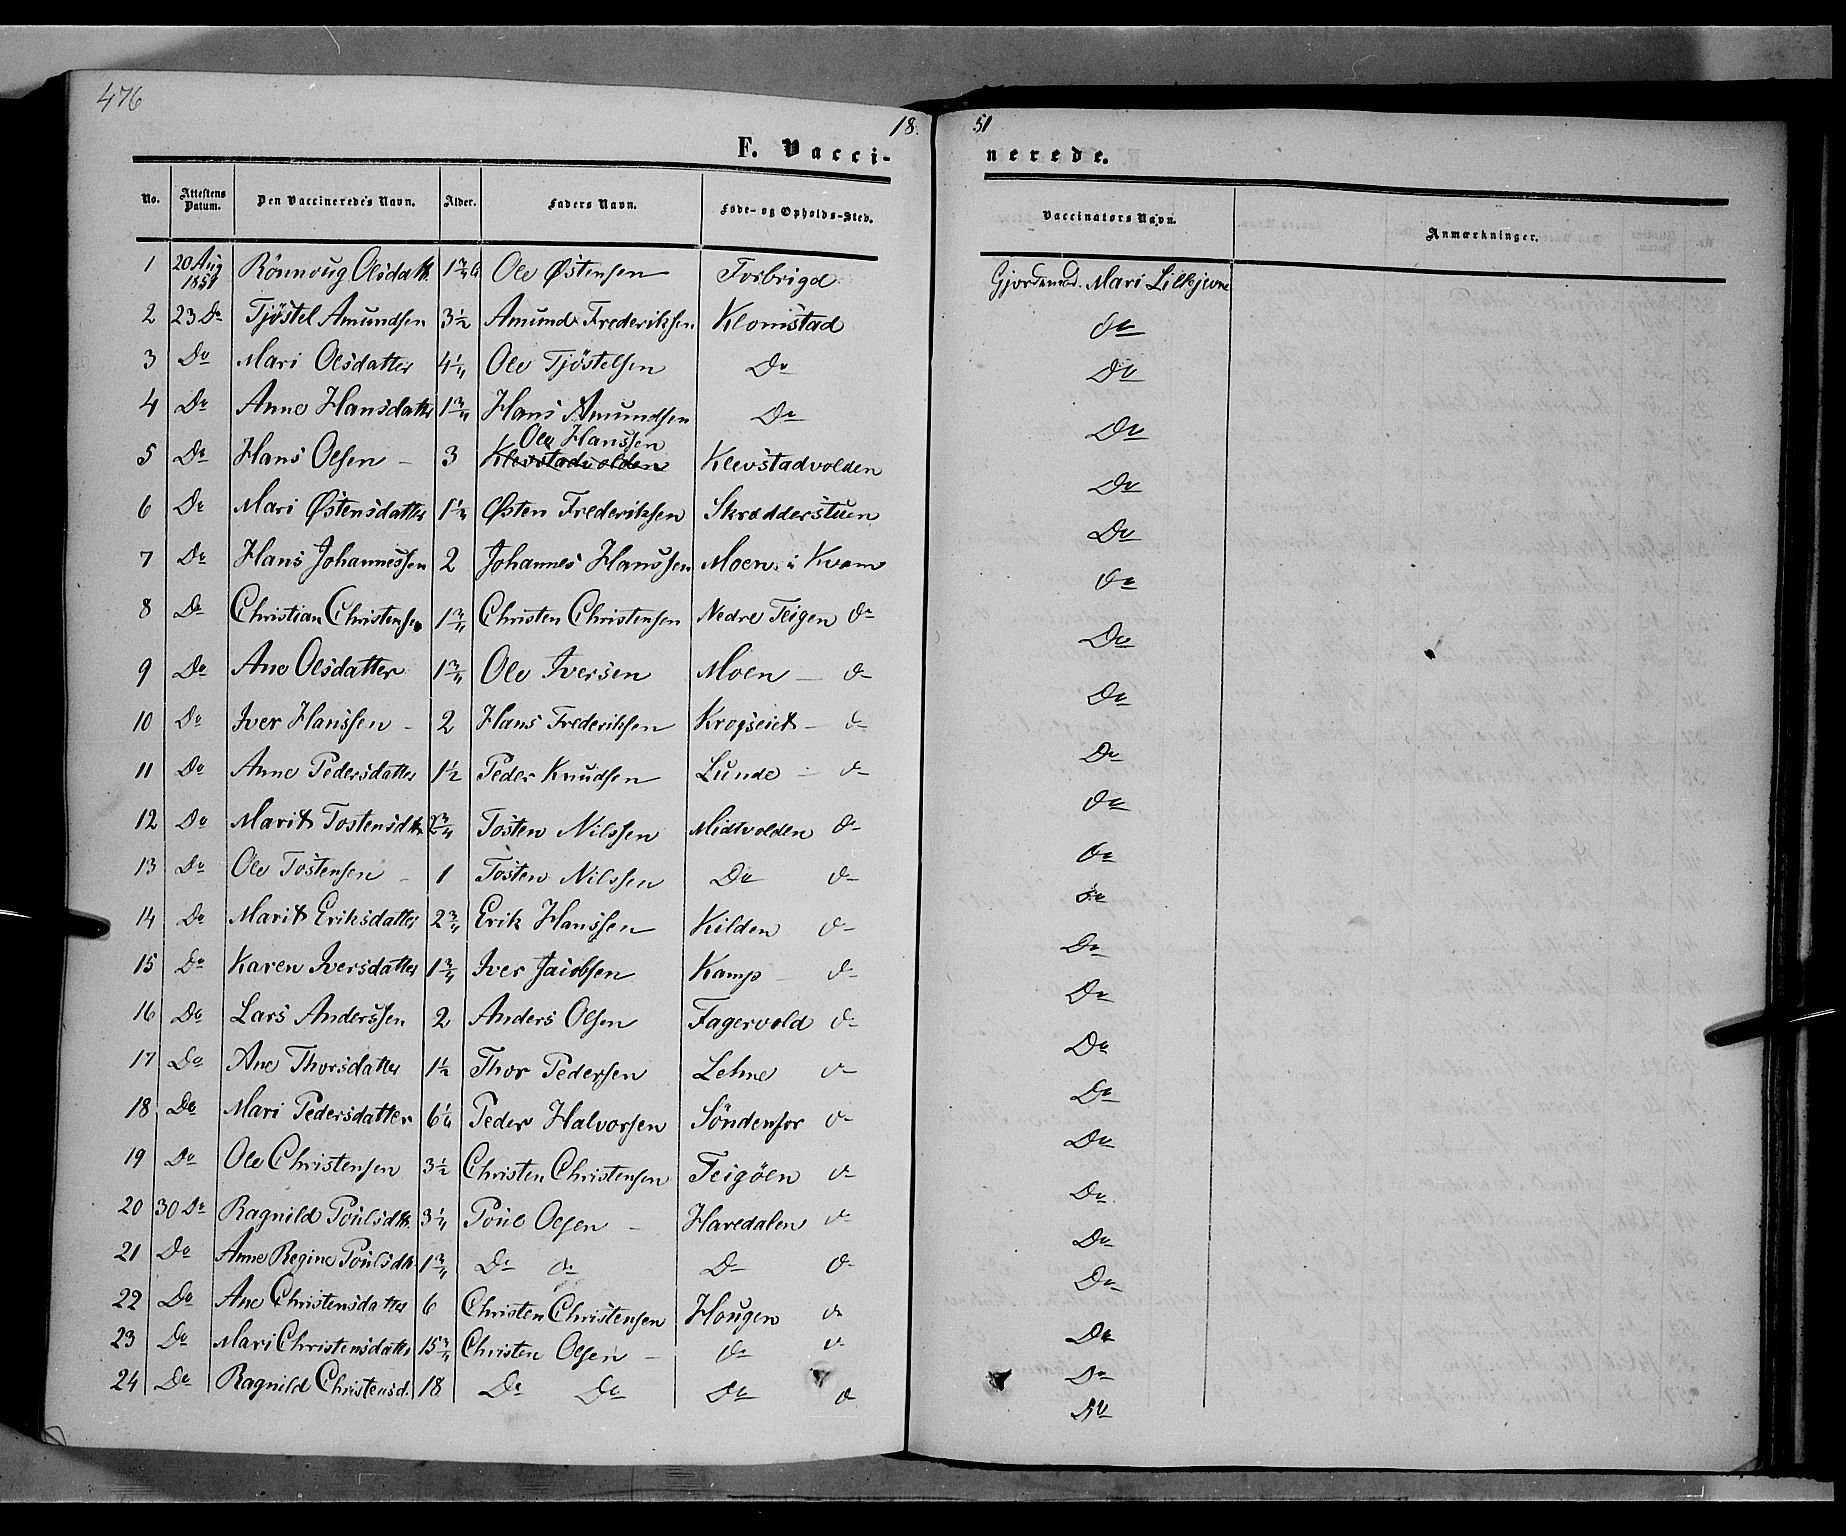 476
18 51
F. Vaccinerede.
No. Attestens Datum. Den Vaccineredes Navn. Alder. Faders Navn. Føde- og Opholds-Sted. Vaccinators Navn. Anmærkninger.
1 20 Aug 1851 Rönnoug Olsdatt. 1 3/4 Ole Østensen Tvibrigd Gjordemod. Mari Lillejevne
2 23 Do Tjöstel Amundsen 3 1/2 Amund Frederiksen Klomstad do
3 Do Mari Olsdatter 4 1/4 Ole Tjöstelsen Do Do
4 Do Anne Hansdatter 1 3/4 Hans Amundsen Do Do
5 Do Hans Olsen - 3 Klevstadvolden Ole Hanssen Klevstadvolden Do
6 Do Mari Østensdatter 1 1/2 Østen Frederiksen Skrædderstuen Do
7 Do Hans Johannessen 2 Johannes Hanssen Moen i Kvam do
8 Do Christian Christensen 1 3/4 Christen Christensen Nedre Teigen do Do
9 Do Ane Olsdatter 1 3/4 Ole Iversen Moen - do Do
10 Do Iver Hanssen - 2 Hans Frederiksen Krogseiet - do Do
11 Do Anne Pedersdatter 1 1/2 Peder Knudsen Lunde - do do
12 Do Marit Tostensdtr 2 3/4 Tosten Nilssen Midtvolden do do
13 Do Ole Tostensen - 1 Tosten Nilssen Do do do
14 Do Marit Eriksdatter 2 3/4 Erik Hanssen Kilden do Do
15 Do Karen Iversdatter 1 3/4 Iver Jacobsen Kamp - do Do
16 Do Lars Anderssen 2 Anders Olsen Fagervold do Do
17 Do Ane Thorsdatter 1 1/2 Thor Pedersen Lehne do Do
18 Do Mari Pedersdatter 6 1/4 Peder Halvorsen Söndenfor do Do
19 Do Ole Christensen 3 1/2 Christen Christensen Teigöen do Do
20 30 Do Ragnild Poulsdtr. 3 1/4 Poul Olsen - Haredalen do Do
21 Do Anne Regine Poulsdtr 1 3/4 Do do Do do Do
22 Do Ane Christensdatter 6 Christen Christensen Hougen do Do
23 Do Mari Christensdatter 15 3/4 Christen Olsen - do do Do
24 Do Ragnild Christensd. 18 Do Do Do do Do